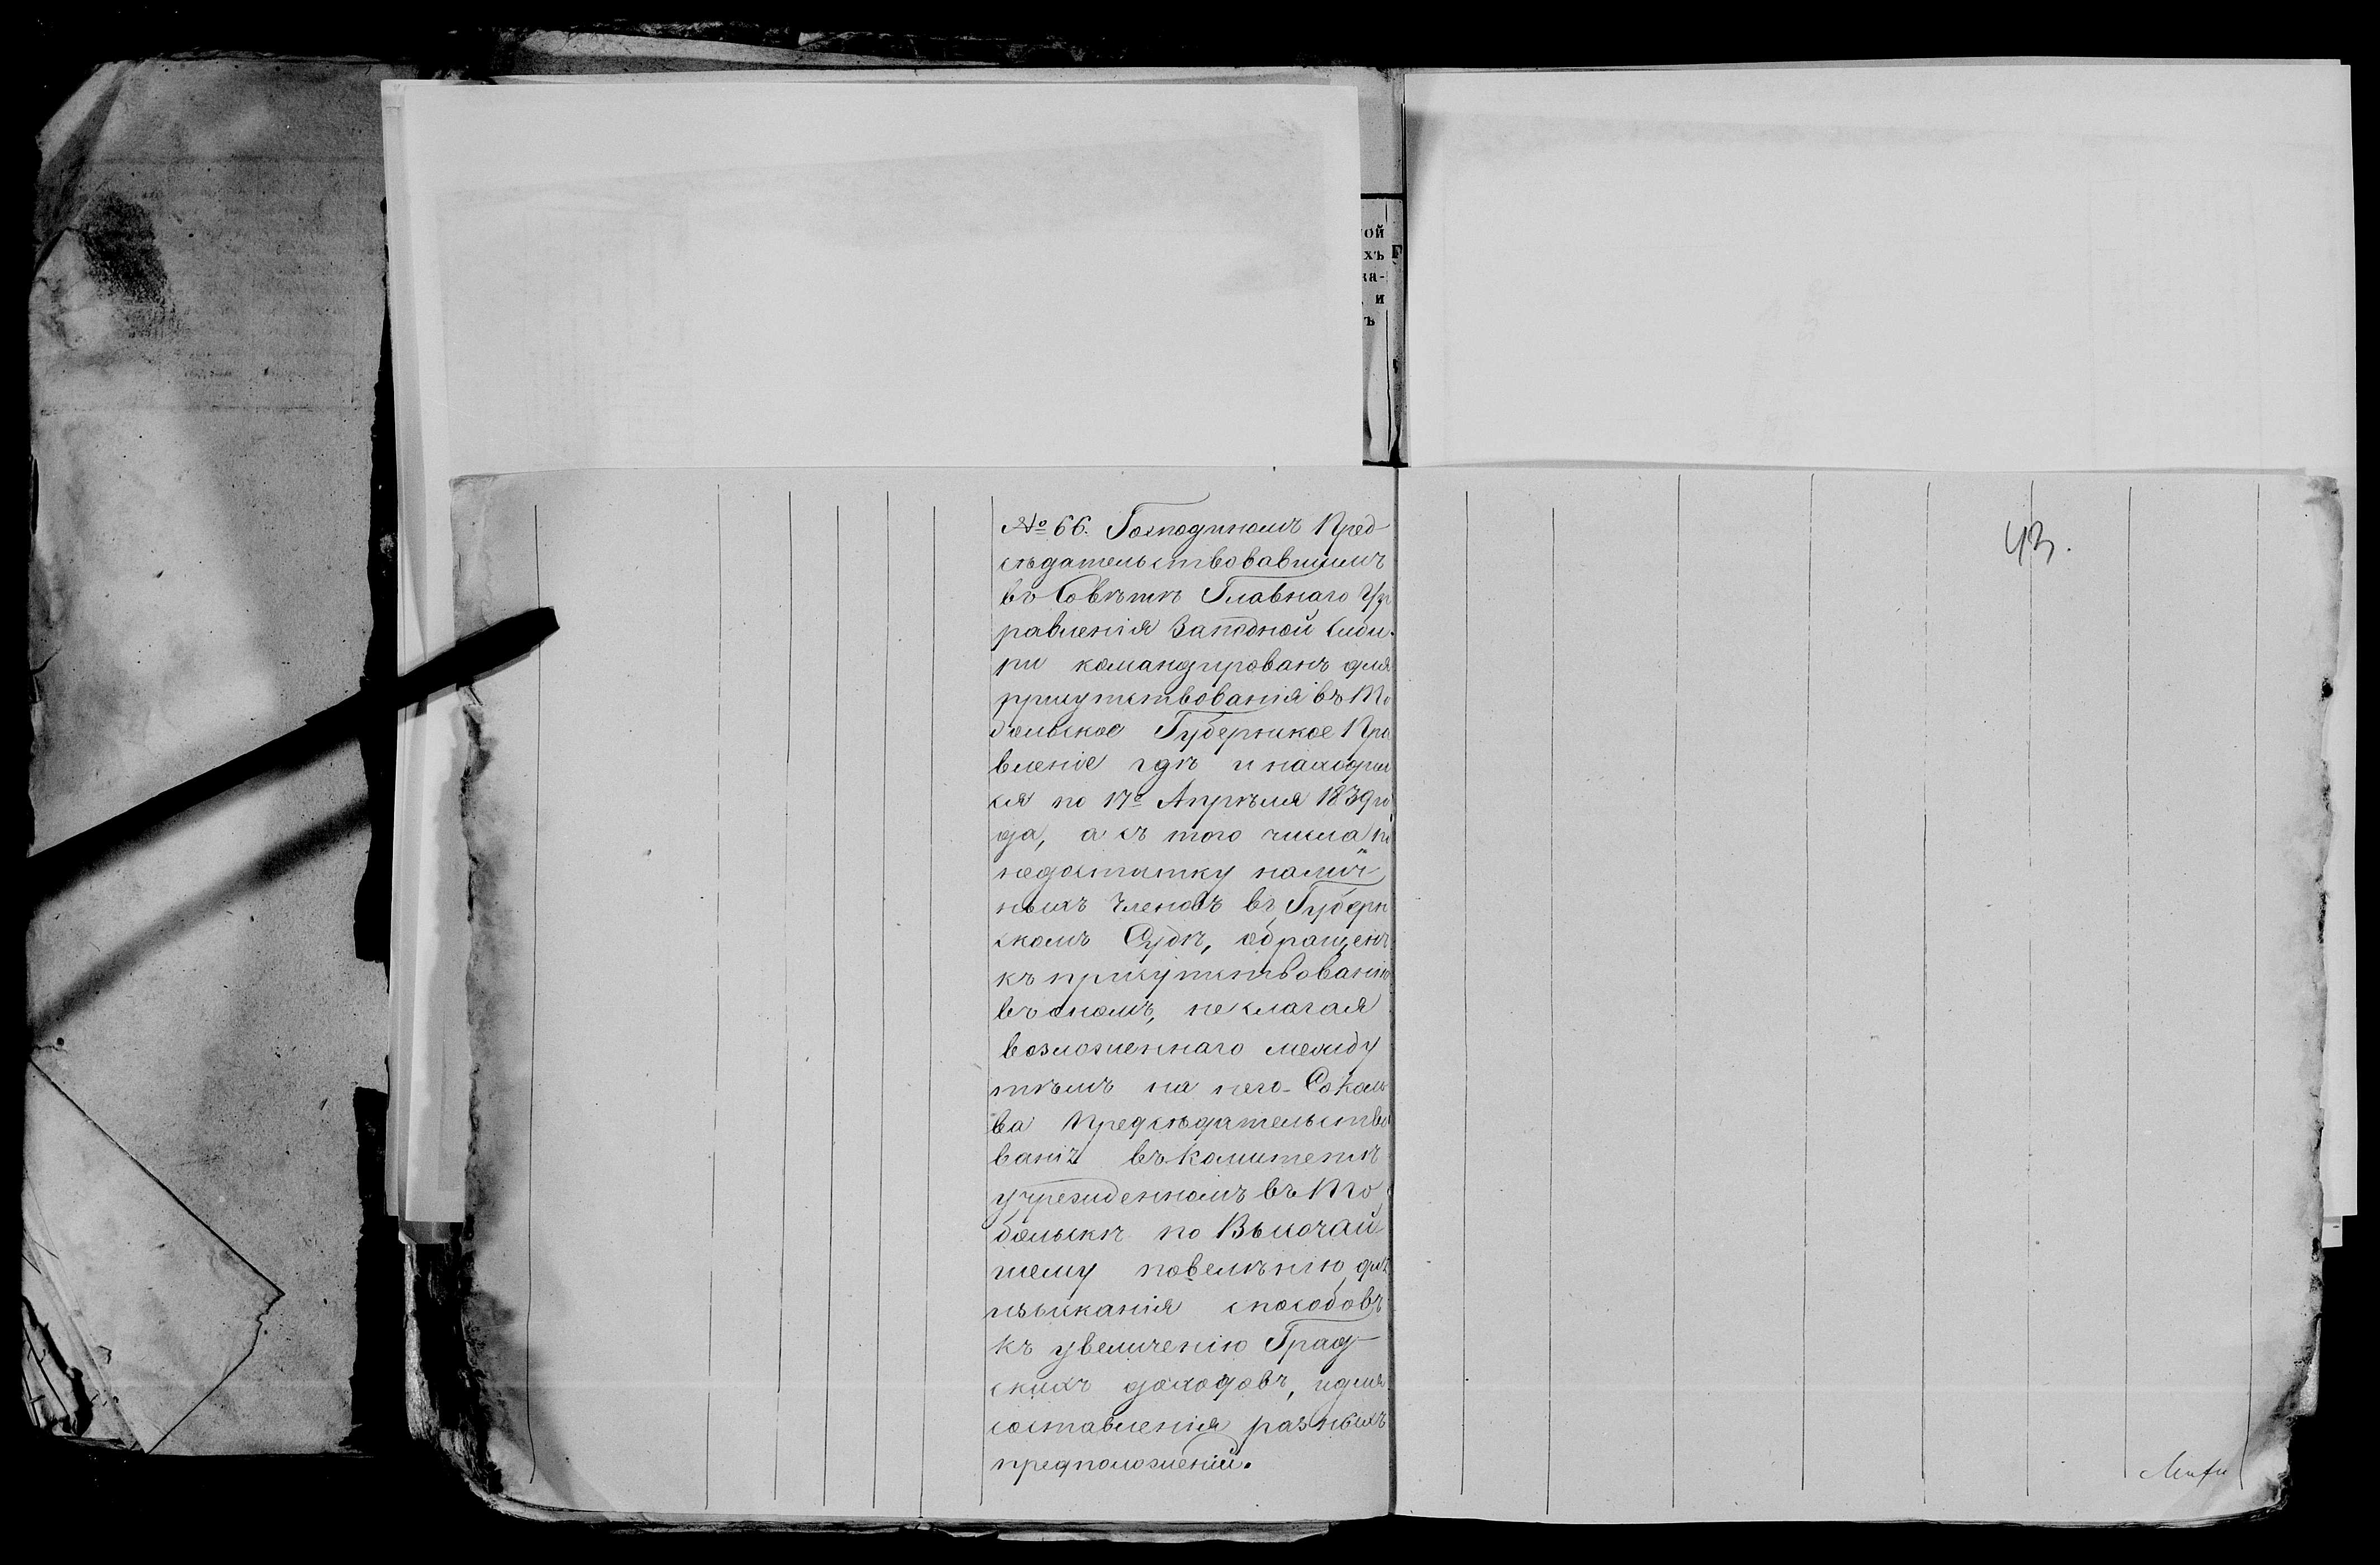 ой
хъ
ка-
и
ъ
№ 66. Господиномъ Пред-
сѣдательствовавшимъ
въ Совѣтѣ Главнаго Уп
равленія Западной Сиби-
ри командированъ для
присутствованія въ То
больское Губернское Пра
вленіе гдѣ и находил
ся по 17е Апрѣля 1839 го
да, а съ того числа по
недостатку налич
ныхъ Членовъ въ Губерн
скомъ Судѣ, обращенъ
къ присутствованію
въ ономъ, не слагая
возложеннаго между
тѣмъ на него Соколо
ва Предсѣдательство
ванія въ Комитетѣ
учрежденномъ въ То
больскѣ по Высочай
шему повелѣнію для
изысканія способовъ
къ увеличенію Град-
скихъ доходовъ, и для
составленія разныхъ
предположеній.
43.